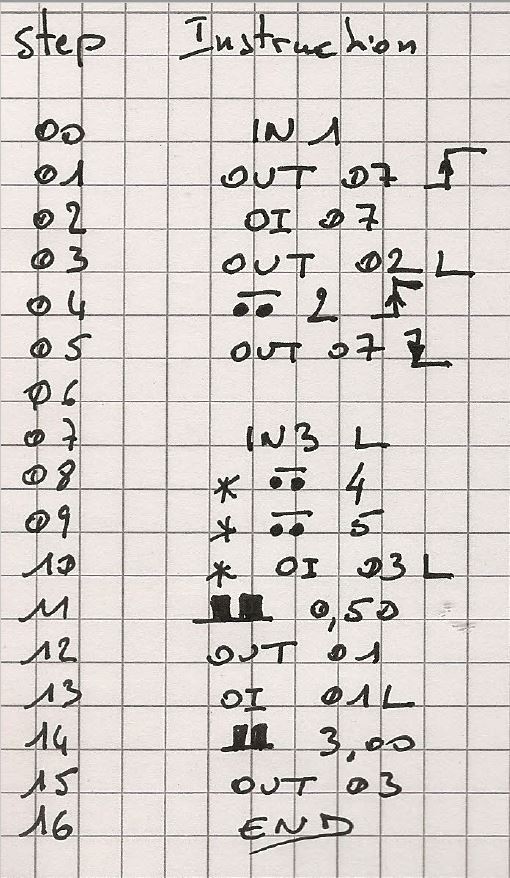 Step Instruction
00 IN 1
01 OUT 07
02 OI 07
03 OUT 02 L
04 2
05 OUT 07
06
07 IN3 L
08 * 4
09 * 5
10 * OI 03 L
11 0,50
12 OUT 01
13 OI 01 L
14 3,00
15 OUT 03
16 END